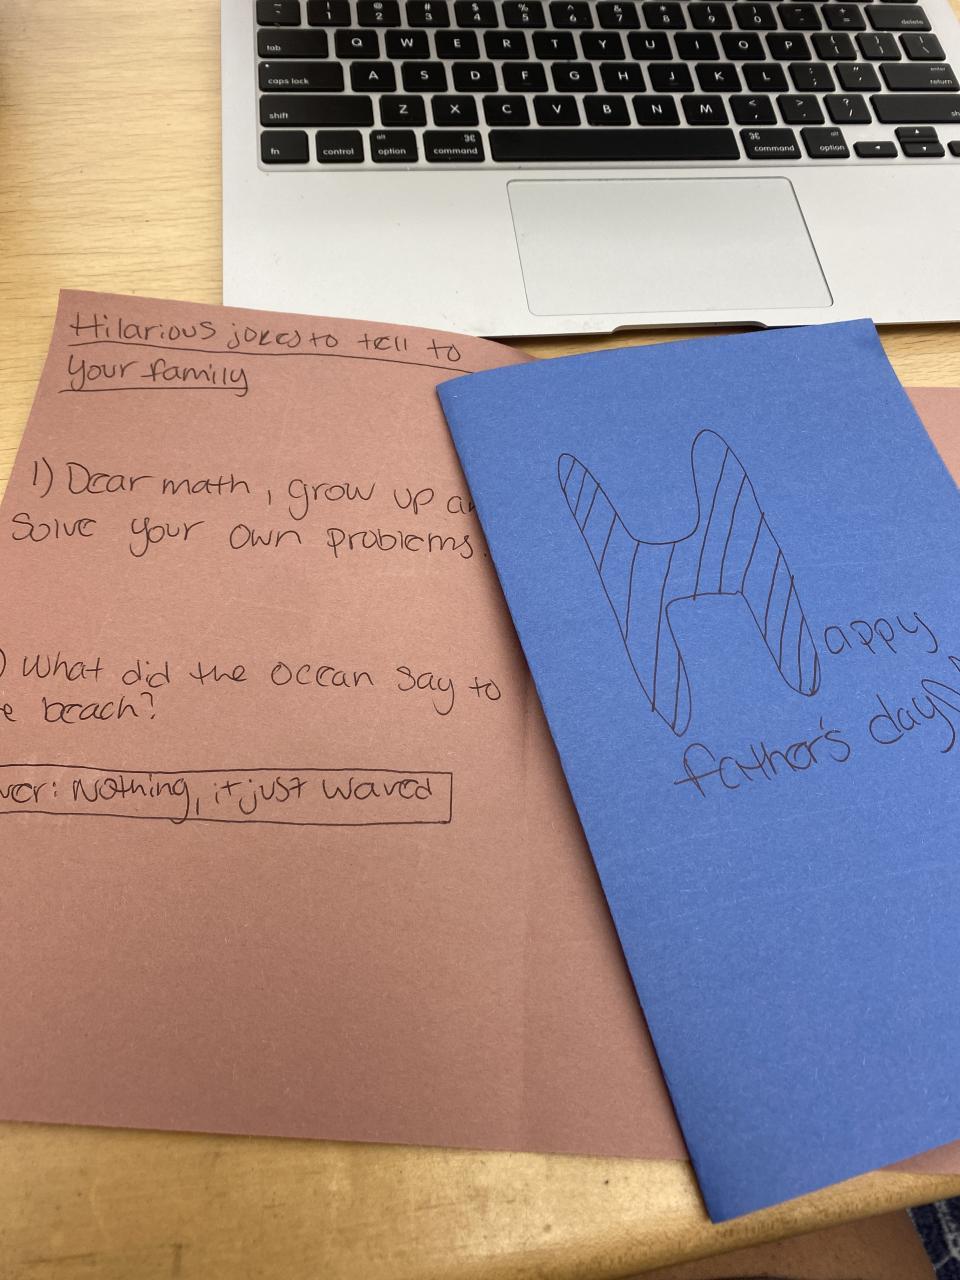 ~ ! @ # $ % ^ & * ( ) - +
` 1 2 3 4 5 6 7 8 9 0 - = delete
tab Q W E R T Y U I O P { } |
[ ] \
caps lock A S D F G H J K L : " enter
; ' return
shift Z X C V B N M < > ?
, . /
fn control alt option ⌘ command ⌘ command alt option
Hilarious jokes to tell to
your family
1) Dear math, grow up
solve your own problems.
) What did the ocean say to
beach?
: Nothing, it just waved
Happy
father's day